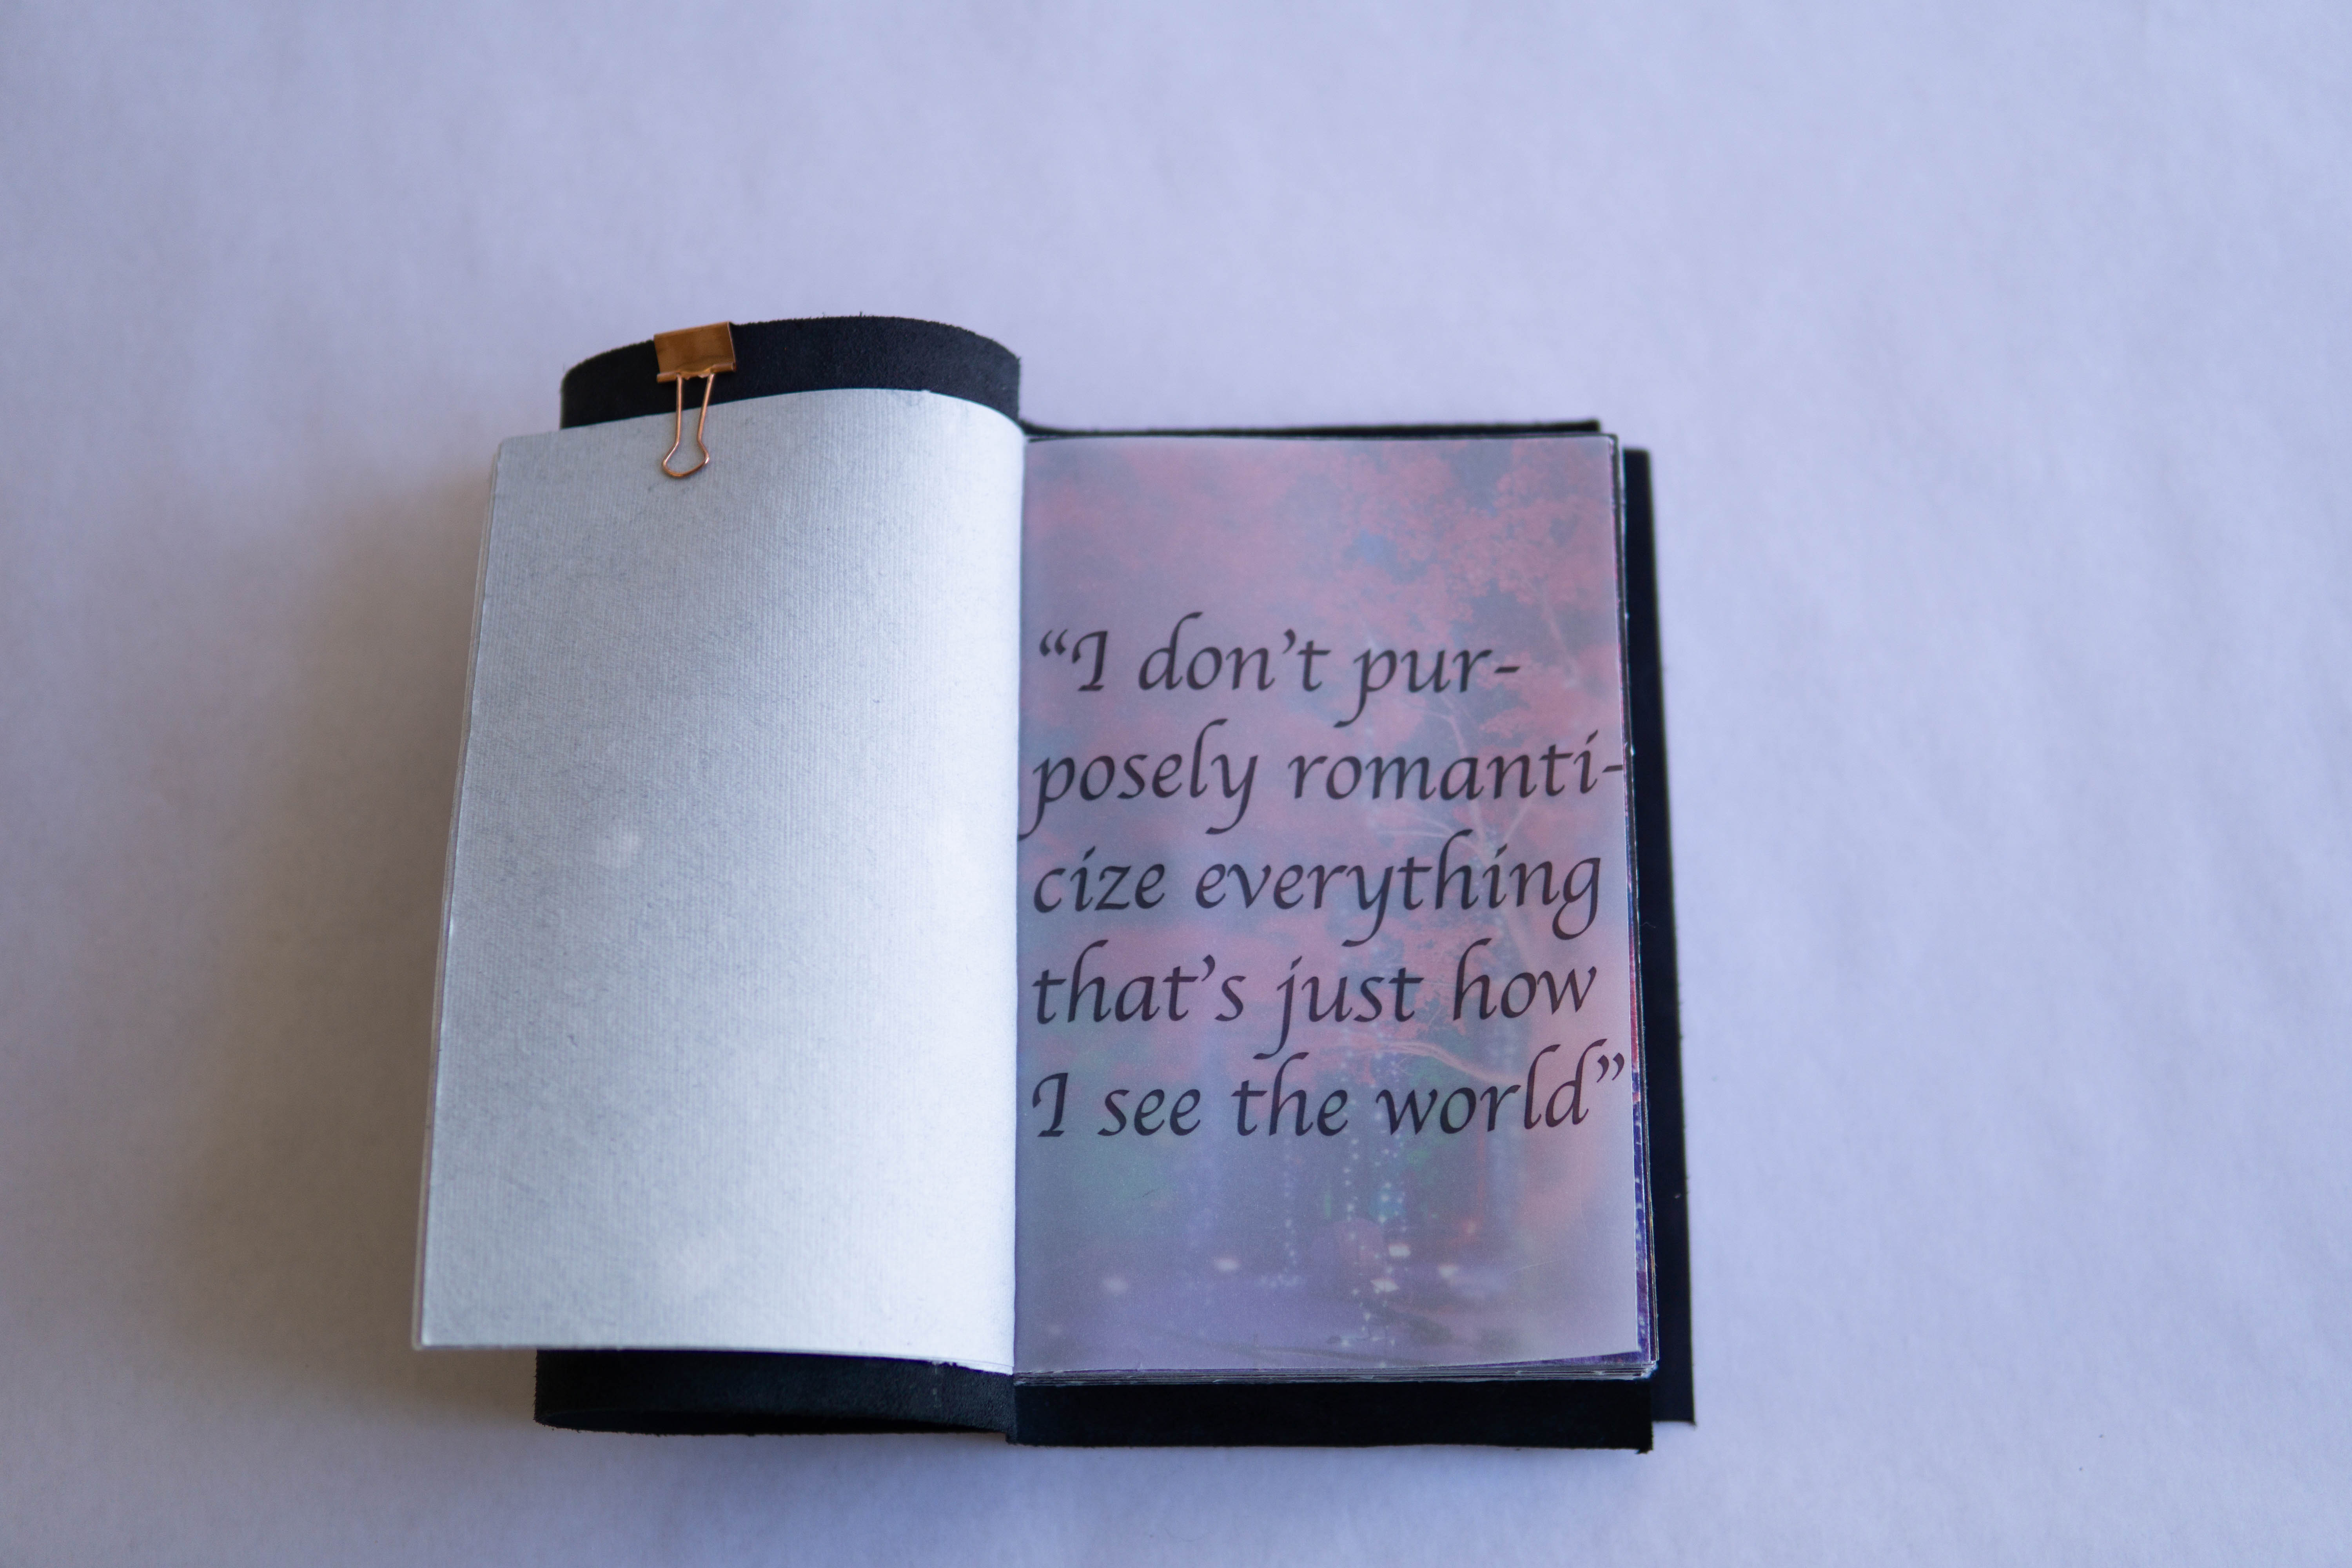 “I don’t pur-
posely romanti-
cize everything
that’s just how
I see the world”